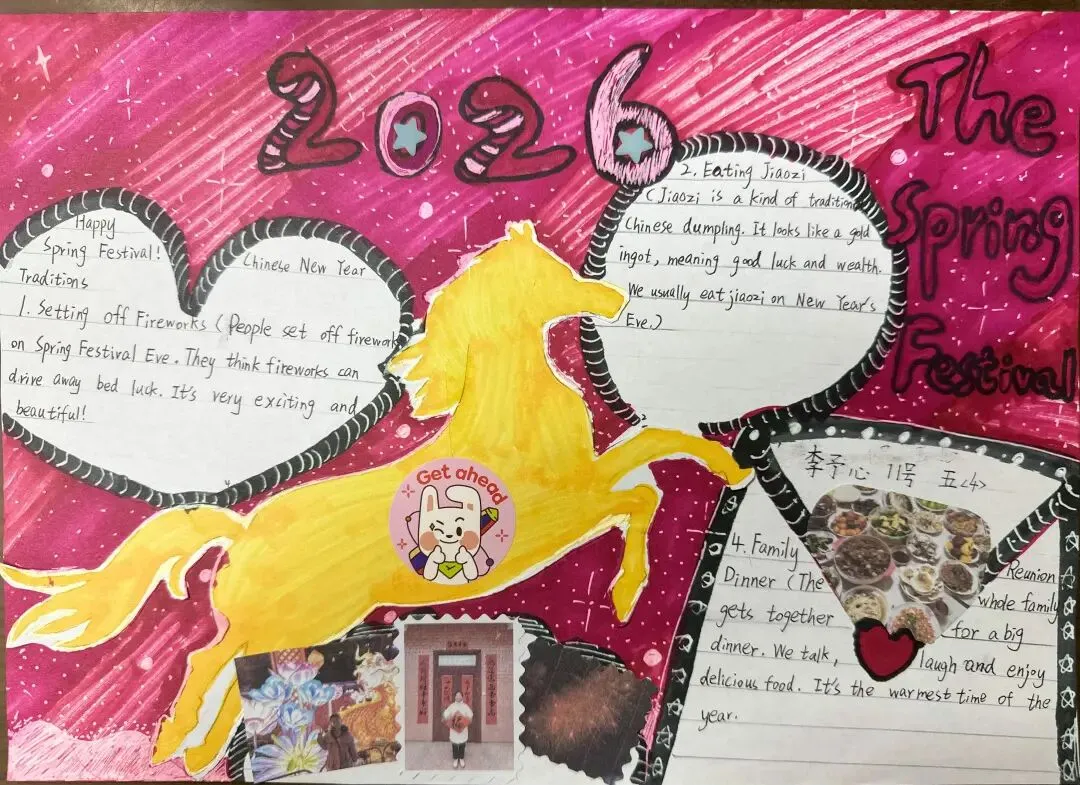 2026
The
Spring
Festival
Happy
Spring Festival!
Chinese New Year
Traditions
1. Setting off Fireworks (People set off firework
on Spring Festival Eve. They think fireworks can
drive away bed luck. It's very exciting and
beautiful!
2. Eating Jiaozi
(Jiaozi is a kind of tradition
Chinese dumpling. It looks like a gold
ingot, meaning good luck and wealth.
We usually eat jiaozi on New Year's
Eve.)
Get ahead
李予心 11号 五<4>
4. Family Reunion
Dinner (The whole family
gets together for a big
dinner. We talk, laugh and enjoy
delicious food. It's the warmest time of the
year.